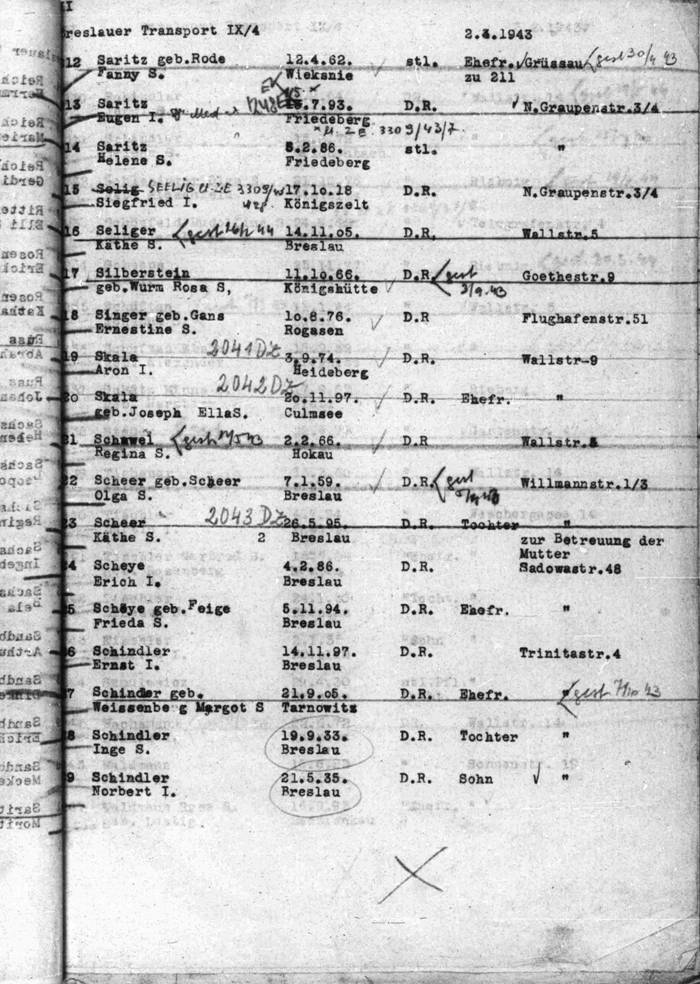 II
reslauer Transport IX/4 2.3.1943
12 Saritz geb.Rode 12.4.62. stl. Ehefr. Grüssau gest 30/4 43
Fanny S. Wieksnie zu 211
13 Saritz .7.93. D.R. N.Graupenstr.3/4
Eugen I. Friedeberg
3309/43/7.
14 Saritz 8.2.86. stl. "
Helene S. Friedeberg
15 Selig SEELIG 3309/ 17.10.18 D.R. N.Graupenstr.3/4
Siegfried I. Königszelt
16 Seliger gest 14.11.05. D.R. Wallstr.5
Käthe S. Breslau
17 Silberstein 11.10.66. D.R. gest Goethestr.9
geb.Wurm Rosa S, Königshütte 2/9.43
18 Singer geb.Gans 1o.8.76. D.R Flughafenstr.51
Ernestine S. Rogasen
19 Skala 2041 DZ 3.9.74. D.R. Wallstr-9
Aron I. Heideberg
20 Skala 2042 DZ 2o.11.97. D.R. Ehefr. "
geb.Joseph EllaS. Culmsee
21 Schawel gest 2.2.66. D.R Wallstr.
Regina S. Hokau
22 Scheer geb.Scheer 7.1.59. D.R. gest Willmannstr.1/3
Olga S. Breslau
23 Scheer 2043 DZ 26.5.95. D.R. Tochter "
Käthe S. 2 Breslau zur Betreuung der
Mutter
24 Scheye 4.2.86. D.R. Sadowastr.48
Erich I. Breslau
25 Scheye geb.Feige 5.11.94. D.R. Ehefr. "
Frieda S. Breslau
26 Schindler 14.11.97. D.R. Trinitastr.4
Ernst I. Breslau
27 Schindler geb. 21.9.05. D.R. Ehefr. " gest 7/10 43
Weissenbe g Margot S Tarnowitz
28 Schindler 19.9.33. D.R. Tochter "
Inge S. Breslau
29 Schindler 21.5.35. D.R. Sohn "
Norbert I. Breslau